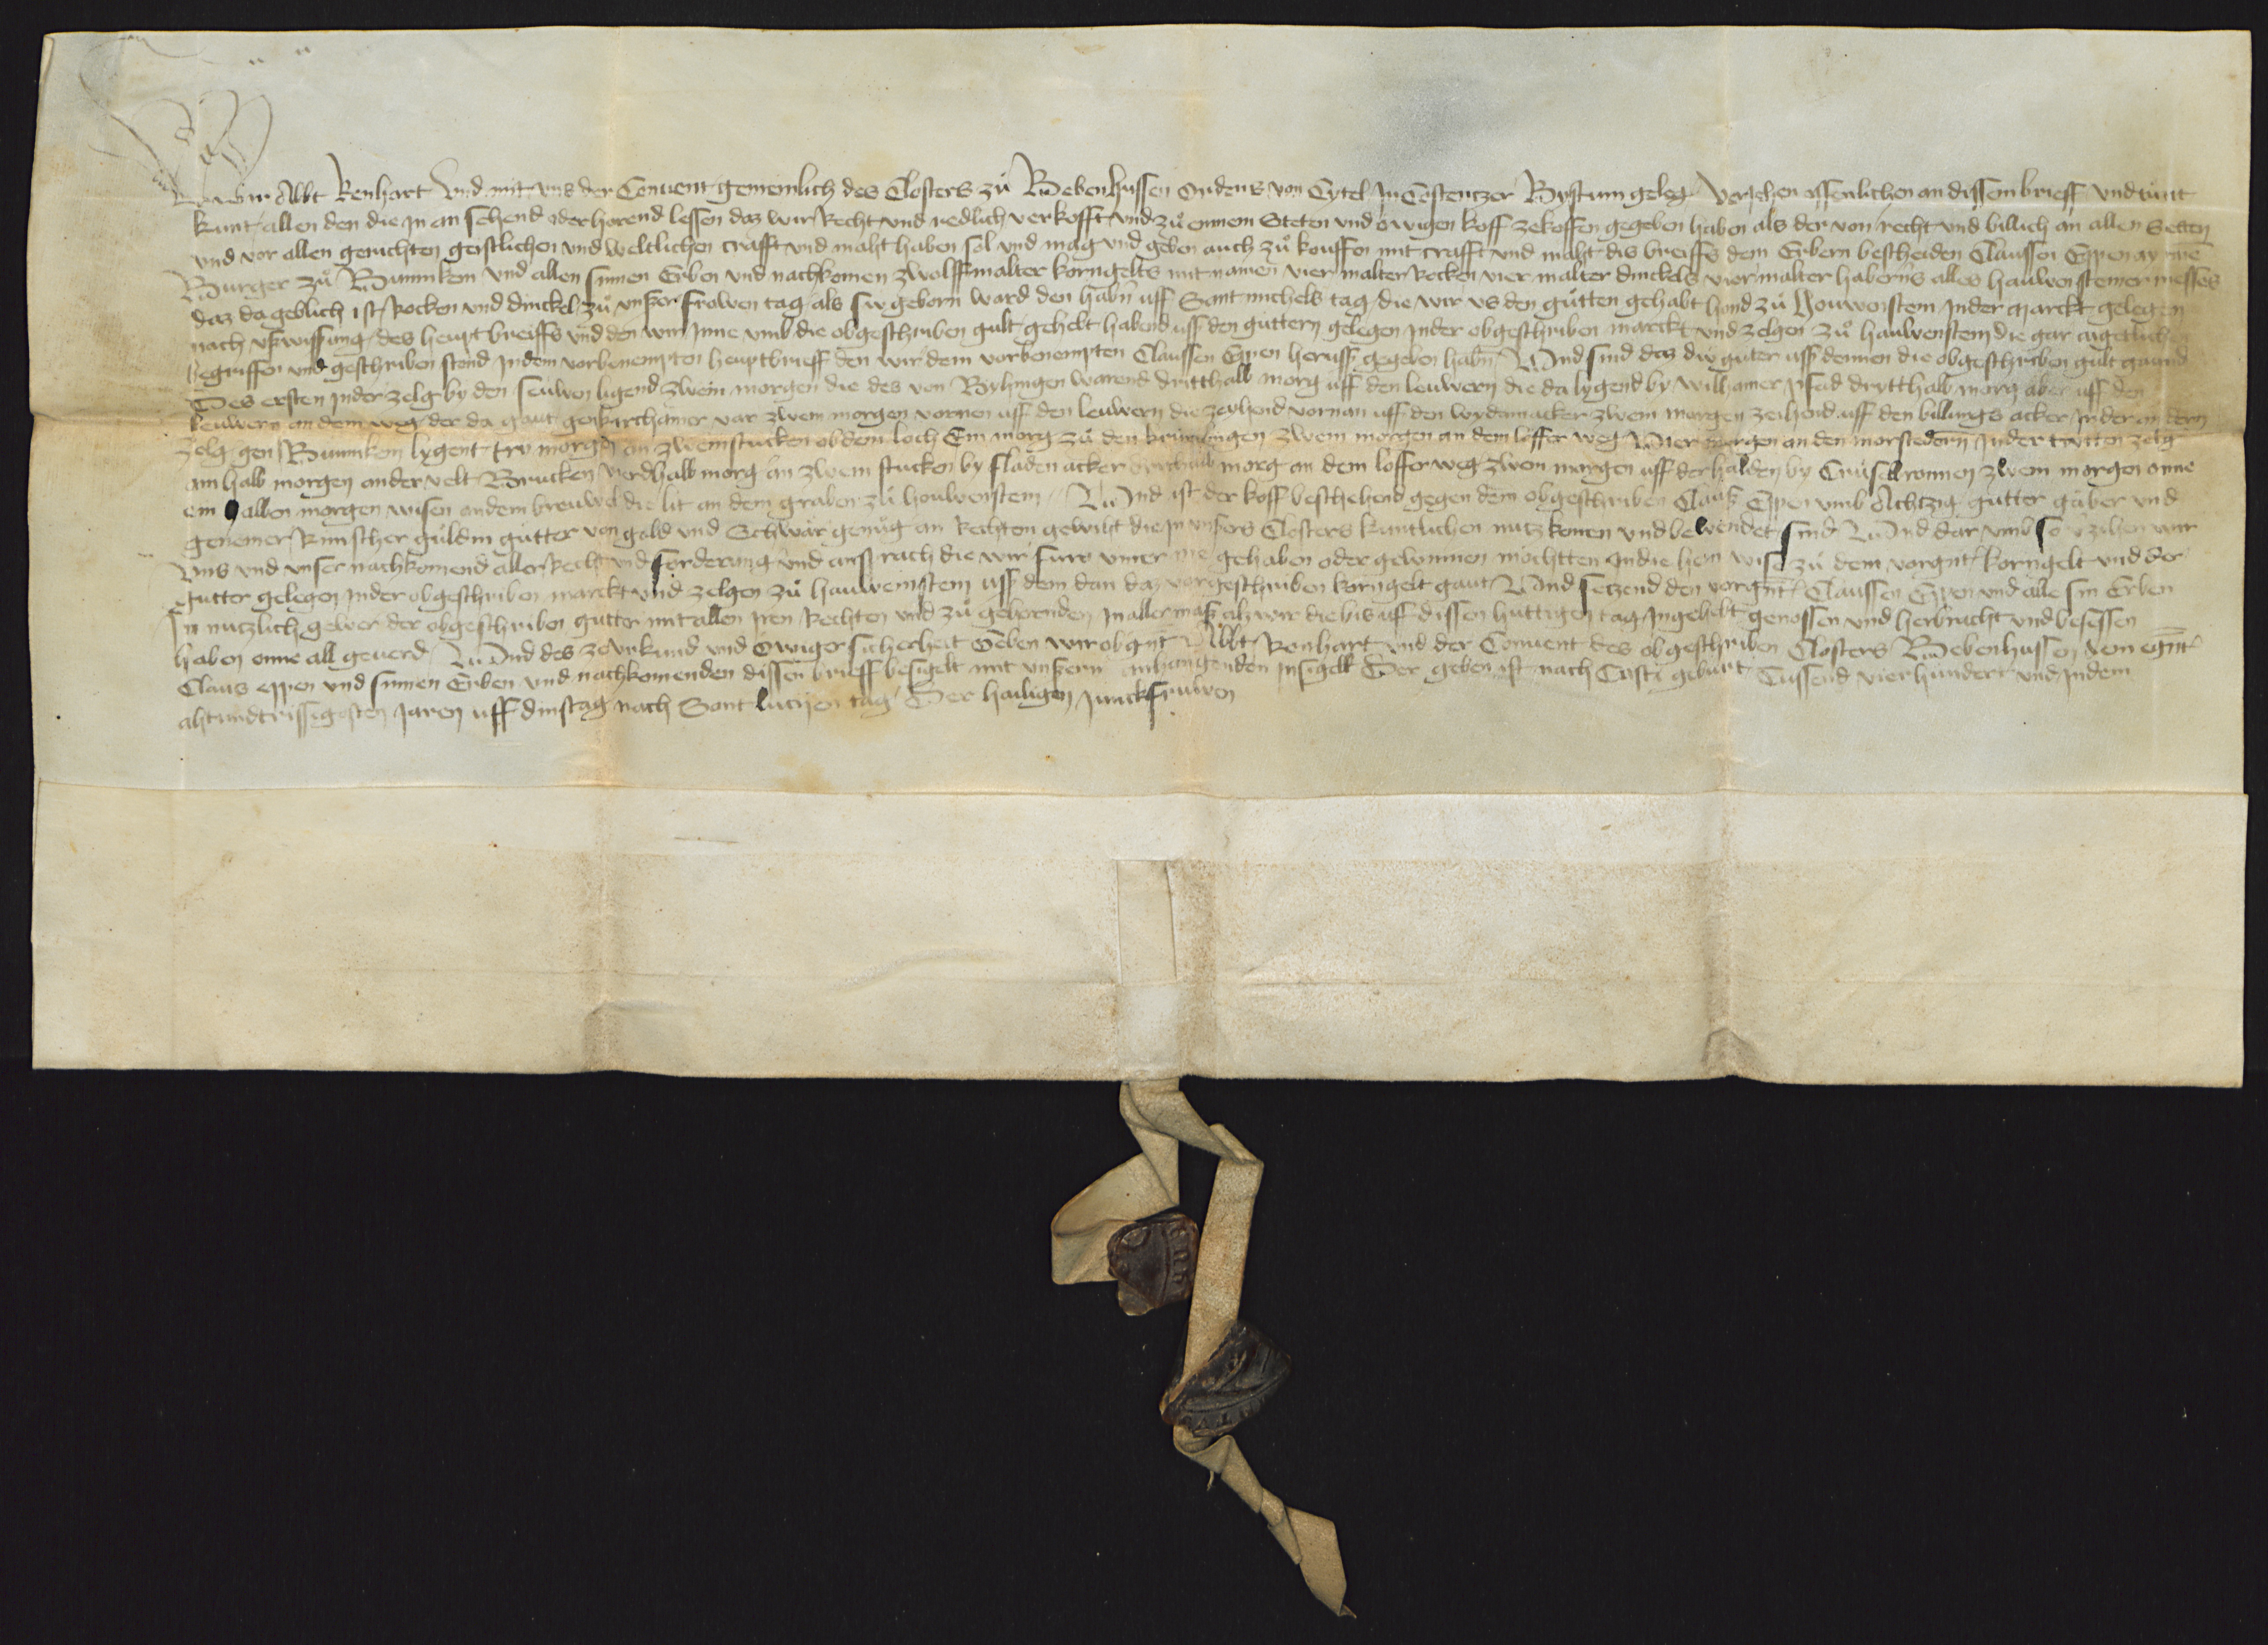 Wir Abbt Renhart Und mit uns der Convent gemeinlich des Closters zů Bebenhussen Ordens von Cytel In Costentzer Bystum geleg. Veriehen offenlichen an dissem brieff und tůnt
kunt allen den die Jn an sehend oder hörend lessen daz wir Recht und redlich verkofft und zů einem Steten und ewigen koff zekoffen gegeben haben als der von recht und billich an allen Stetten
und vor allen gerichten geistlichen und weltlichen crafft und maht haben sol und mag und geben auch zů kouffen mit crafft und maht dis breiffs dem Erbern bescheiden Claussen Eppen
Burger zů Bunnikem und allen sinnen Erben und nachkomen zwölff malter korngelts mit namen vier malter Rocken vier malter dinckels vier malter haberns alles hauwensteiner messes
daz da geblich ist Rocken und dinckel zů unser frowen tag als siv geborn ward den habn uff Sant michels tag die wir us den gůtten gehabt hand zů Houwenstein Inder marckt gelegen
nach uswissung des heupt breiffs und den wir Jnne umb die obgeschriben gult gehebt habend uff den guttern gelegen Inder obgeschriben marckt und zelgen zů hauwenstein die gar aigetlichen
begriffen und geschriben stend Jn dem vorbenempten heuptbrieff den wir dem vorbenempten Claussen Eppen heruss gegeben habn Und sind daz div guter uss dennen die obgeschriben gult gaund
Des ersten Jnder zelg by den seuwen ligend zwein morgen die des von Byhingen warend dritthalb morg uff den leuwern die da lygend by wilhamer pfad drytthalb morg aber uff den
leuwern an dem weg der da gaut gen kirchamer var zwein morgen vornen uff den leuwern die zeihend vornan uff den wydemacker zwein morgen zeihend uff den billings acker Jn der andern
zelg gen Bunnikem lygent trv morgen an zwein stucken ob dem loch Ein morg zů den krimlingen zwein morgen an dem löffer weg Vier morgen an den morstedern Jn der tritten zelg
ain halb morgen ander velt Brucken Verdhalb morg an zwein stucken by fladen acker morg an dem löfferweg zwen morgen uff der halden by Crüselbronnen zwein morgen onne
ein halben morgen wisen an dem breuwel die lit an dem graben zů houwenstein Und ist der koff beschehend gegen dem obgeschriben Claus Eppen umb Achtzig gutter gäber und
genemer Rinscher guldin gutter von gold und Schwär genůg an Rechten gewiht die jn unsers Closters kuntlichen nutz komen und bewendet sind Und dar umb so verzihen wir
Uns und unser nachkomend aller Recht und forderung und ansprach die wir furo umer me gehaben oder gewinnen möchtten Jn die hein wise zů dem vorgnt korngelt und der
Gutter gelegen Jnder obgeschriben marckt und zelgen zů hauwenstein uss dem dan daz vorgeschriben korngelt gaut Und setzend den vorgnt Claussen Eppen und alle sin Erben
Jn nutzlich gewer der obgeschriben gutter mit allen Jren Rechten und zů gehörenden Jn aller maß alz wir die bis uff dissen huttigen tag Jngehebt genossen und herbracht und besessen
haben onne all geverd Und des ze Urkund und Ewiger sicherheit Geben wir obgnt Abbt Renhart und der Convent des obgeschriben Closters Bebenhussen dem egnt
Claus eppen und sinnen Erben und nachkomenden dissen brieff besigelt mit unsern anhangenden Jnsigell Der geben ist nach Cristi geburt Tussend vierhundert und Jn dem
ahtundtrissigosten Jaren uff dinstag nach Sant lucijen tag Der hailigen Junckfruwen